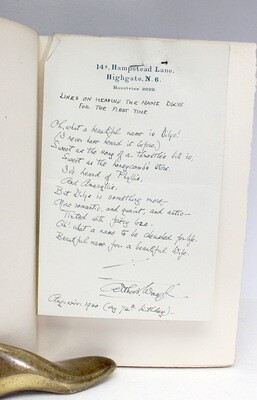 14a, Hampstead Lane,
Highgate, N. 6.
Mountview 2602
LINES ON HEARING THE NAME DILYS
FOR THE FIRST TIME
Oh, what a beautiful name is Dilys!
(I never have heard it before)
Sweet as the song of a throstle's bill is,
Sweet as the honeycomb's store.
I've heard of Phyllis,
And Amaryllis.
But Dilys is something more—
romantic, and quaint, and
with fairy
Oh! what a name to be cherished for life.
Beautiful name for a beautiful Wife.
Arthur Waugh
(my 74th birthday)—